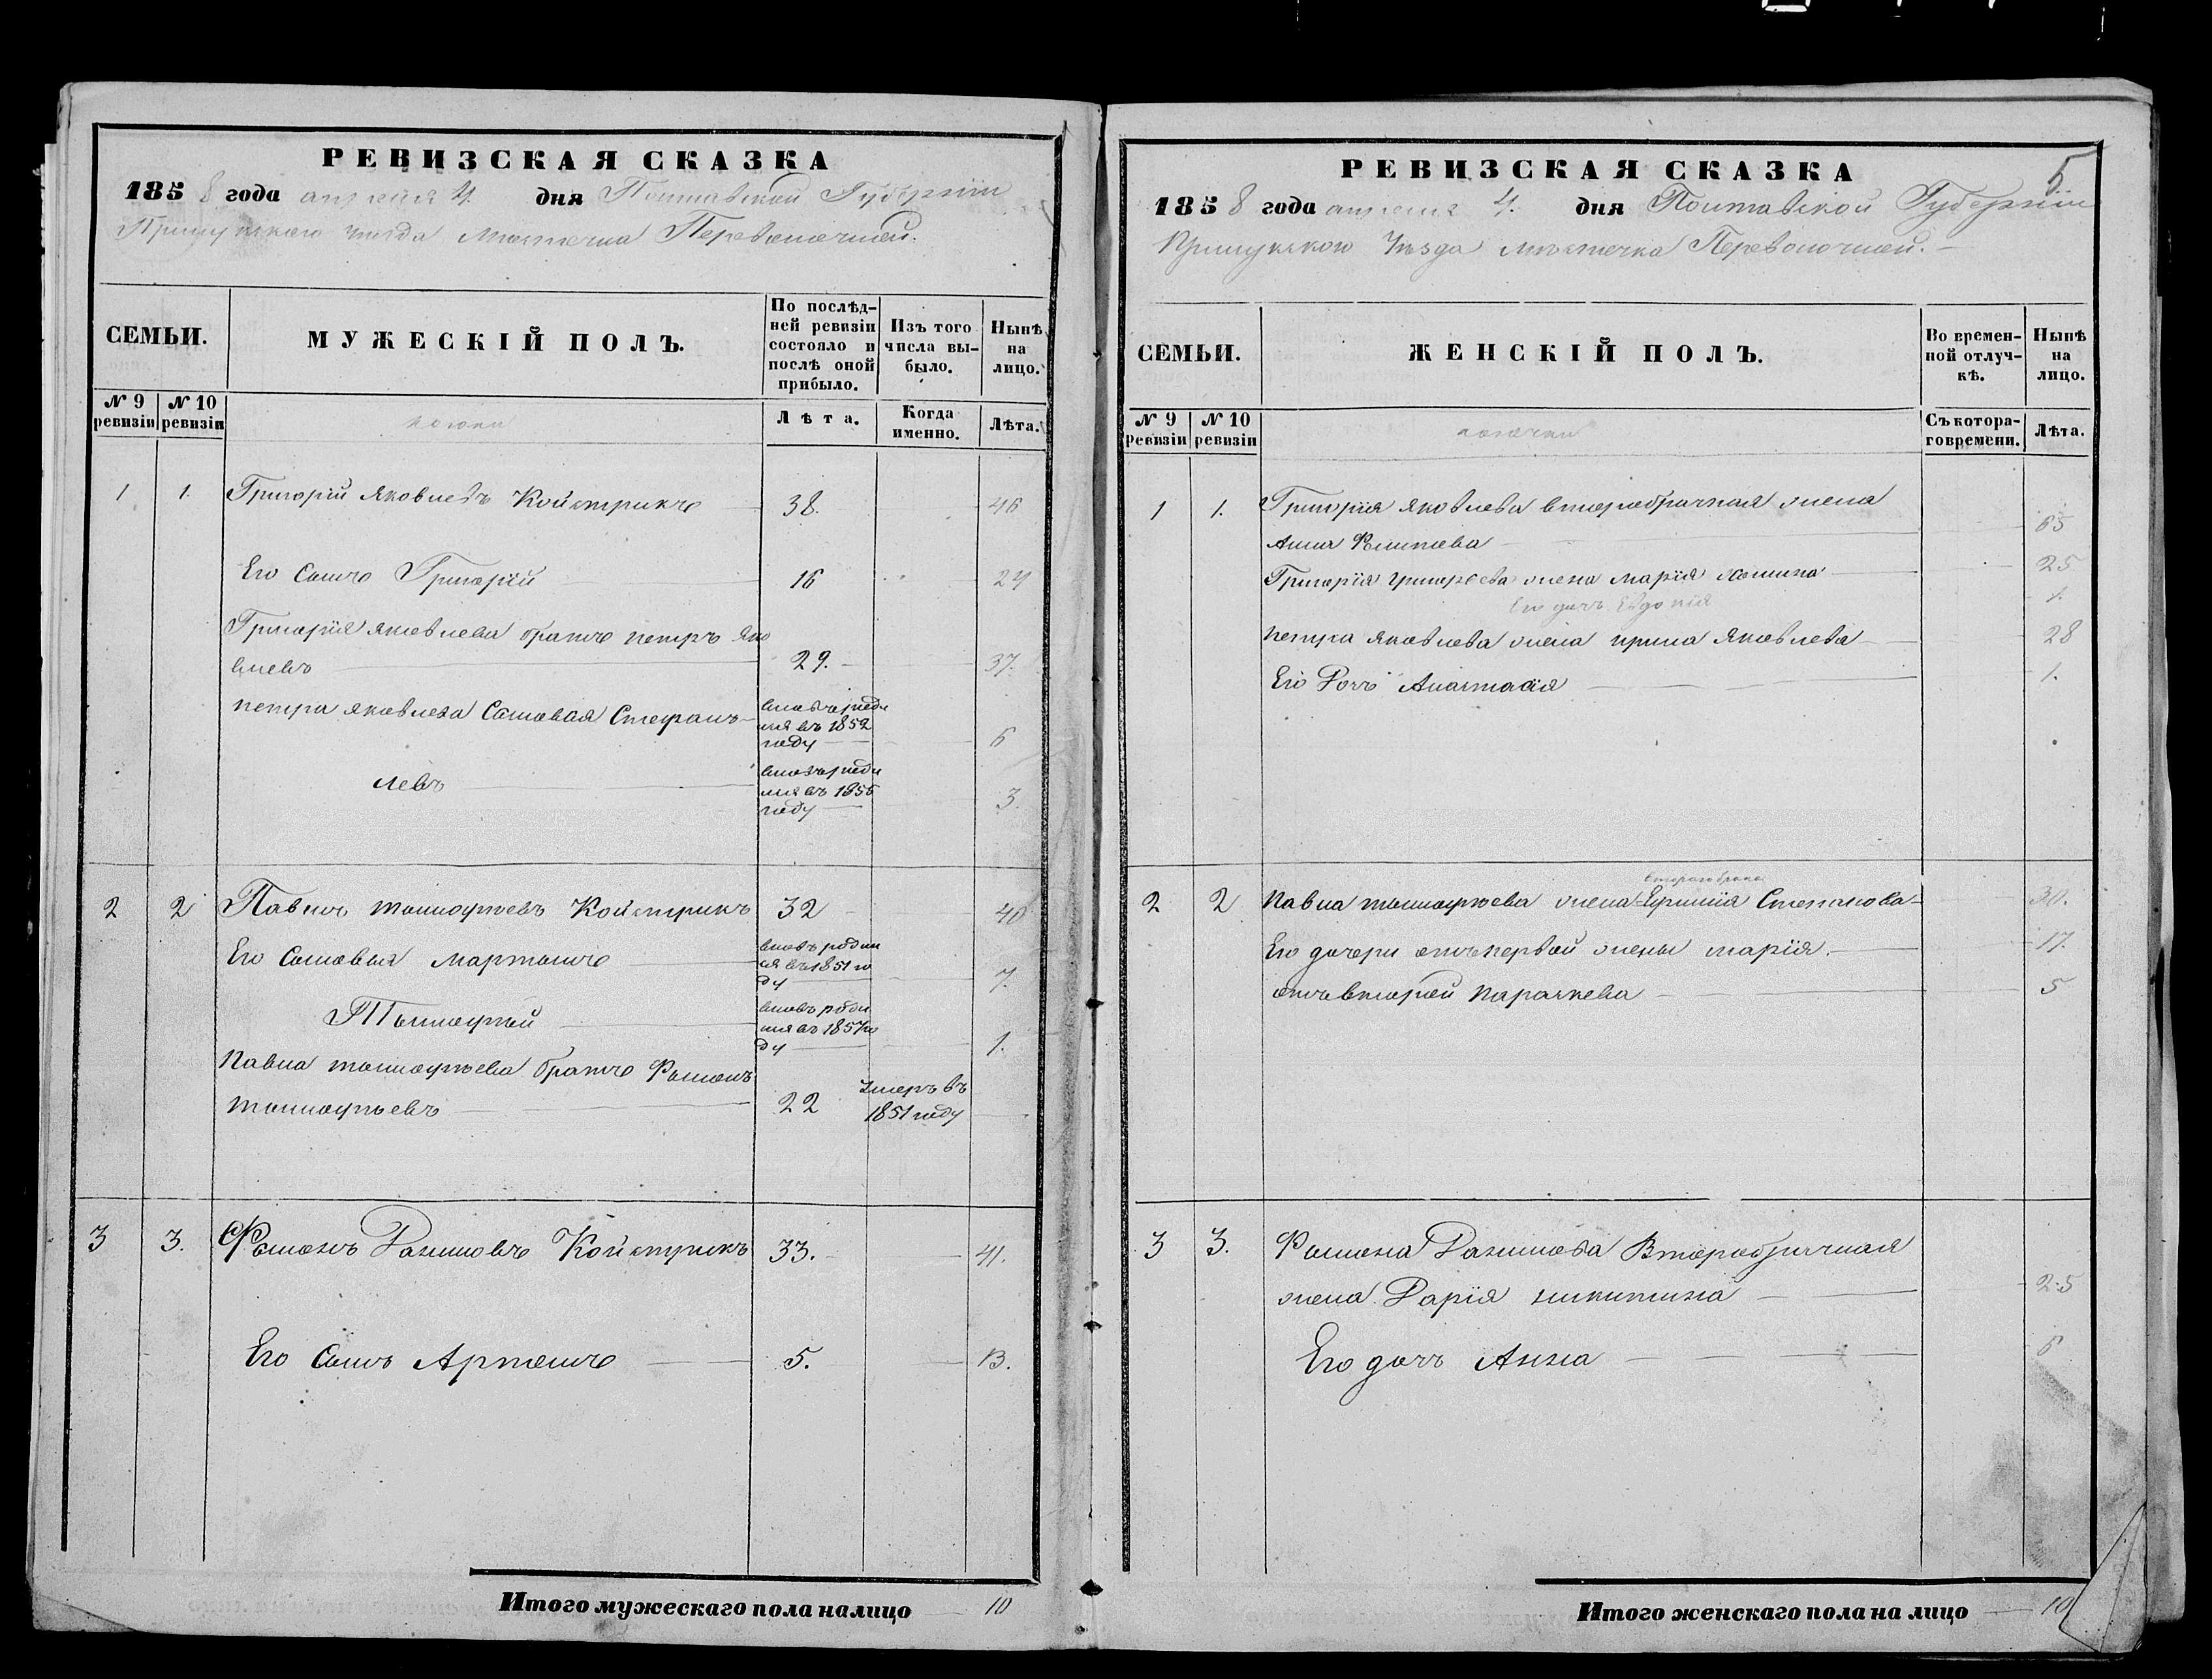 РЕВИЗСКАЯ СКАЗКА
1858 года апреля 4. дня Полтавской Губерніи
Прилукского уезда Местечка Переволочной.
СЕМЬИ.
МУЖЕСКІЙ ПОЛЪ.
По послѣд-
ней ревизіи
состояло и
послѣ оной
прибыло.
Изъ того
числа вы-
было.
Нынѣ
на
лицо.
№ 9
ревизіи
№ 10
ревизіи
Лѣта.
Когда
именно.
Лѣта.
1 1. Григорій Яковлевъ Койстрикъ 38. 46
Его Сынъ Григорій 16 24
Григорія Яковлева братъ петръ Яко
влевъ 29. 37.
петра яковлева Сыновья Стефанъ вновь роди
лся въ 1852
году 6
левъ вновь роди
лся въ 1855
году 3.
2 2 Павелъ тимофеевъ Койстрикъ 32 40
Его Сыновья мартынъ вновь родил
ся въ 1851 го
ду 7.
Тимофей вновь роди
лся въ 1857 го
ду 1.
Павла тимофеева братъ Романъ
тимофеевъ 22 Умеръ въ
1851 году
3 3. Романъ Даниловъ Койстрикъ 33. 41.
Его Сынъ Артемъ 5. 13.
Итого мужескаго пола налицо 10
5
РЕВИЗСКАЯ СКАЗКА
1858 года апреля 4. дня Полтавской Губерніи
Прилукского Уезда местечка Переволочной.
СЕМЬИ.
ЖЕНСКІЙ ПОЛЪ.
Во времен-
ной отлуч-
кѣ.
Нынѣ
на
лицо.
№ 9
ревизіи
№ 10
ревизіи
Съ котора-
го времени.
Лѣта.
1 1. Григорія яковлева второбрачная жена
Анна 65
Григорія григорьева жена марія 25
Его дочь Евдокія 1.
петра яковлева жена ирина Яковлева 28
Его Дочь Анастасія 1.
2 2 Павла тимофеева жена Степанова 30.
втораго брака
Его дочери отъ первой жены марія. 17.
отъ второй параскева 5
3 3. Романа Данилова Второбрачная
жена Дарія никитина 25
Его дочь Анна 6
Итого женскаго пола на лицо 10